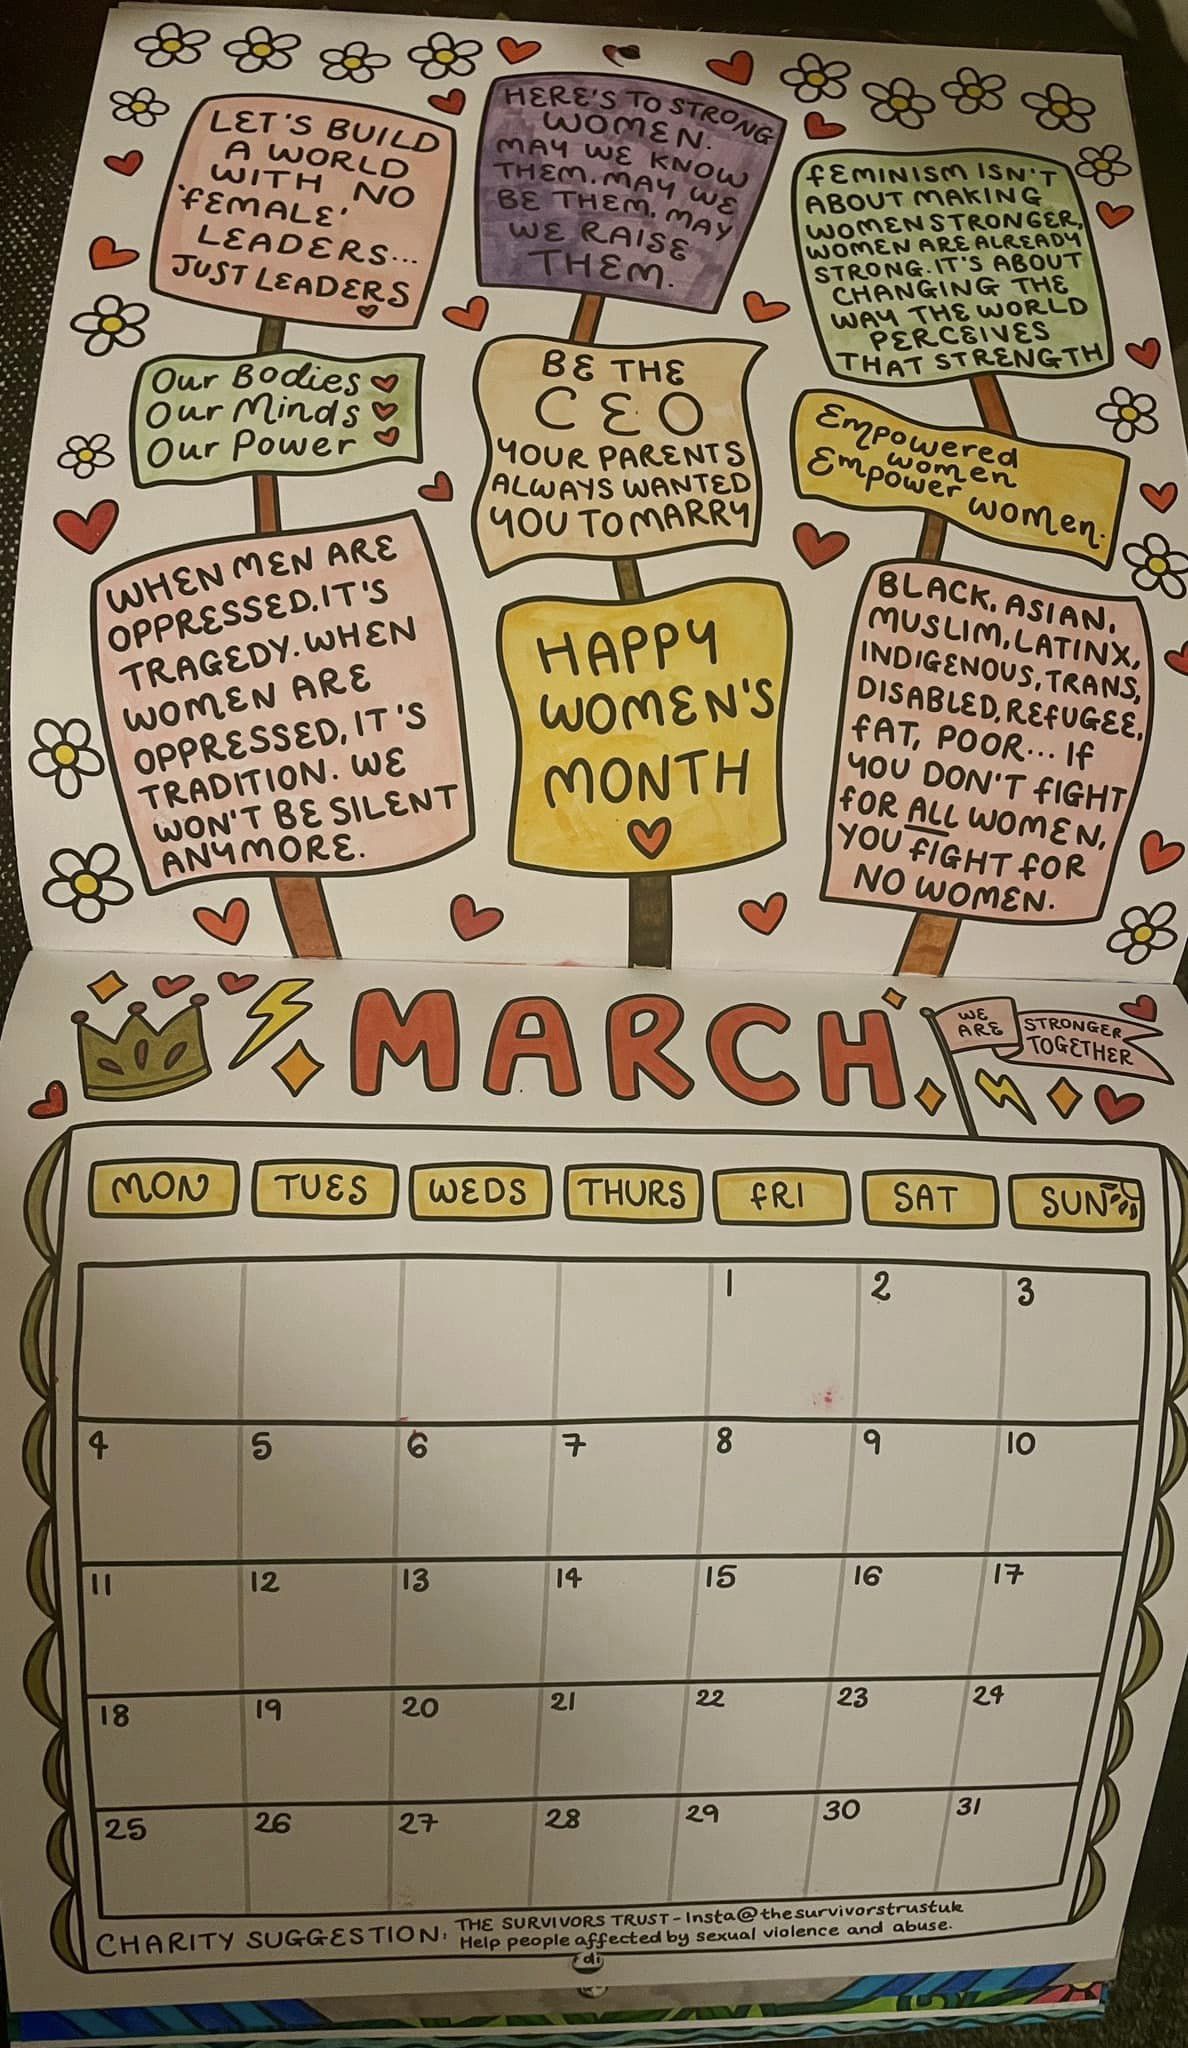 LET'S BUILD
A WORLD
WITH NO
'FEMALE'
LEADERS...
JUST LEADERS
HERE'S TO STRONG
WOMEN.
MAY WE KNOW
THEM. MAY WE
BE THEM. MAY
WE RAISE
THEM.
FEMINISM ISN'T
ABOUT MAKING
WOMEN STRONGER,
WOMEN ARE ALREADY
STRONG. IT'S ABOUT
CHANGING THE
WAY THE WORLD
PERCEIVES
THAT STRENGTH
Our Bodies
Our Minds
Our Power
BE THE
CEO
YOUR PARENTS
ALWAYS WANTED
YOU TO MARRY
Empowered
women
Empower women.
WHEN MEN ARE
OPPRESSED, IT'S
TRAGEDY. WHEN
WOMEN ARE
OPPRESSED, IT'S
TRADITION. WE
WON'T BE SILENT
ANYMORE.
HAPPY
WOMEN'S
MONTH
BLACK, ASIAN,
MUSLIM, LATINX,
INDIGENOUS, TRANS,
DISABLED, REFUGEE,
FAT, POOR... IF
YOU DON'T FIGHT
FOR ALL WOMEN,
YOU FIGHT FOR
NO WOMEN.
MARCH
WE ARE STRONGER TOGETHER
MON TUES WEDS THURS FRI SAT SUN
1 2 3
4 5 6 7 8 9 10
11 12 13 14 15 16 17
18 19 20 21 22 23 24
25 26 27 28 29 30 31
CHARITY SUGGESTION: THE SURVIVORS TRUST - Insta@thesurvivorstrustuk
Help people affected by sexual violence and abuse.